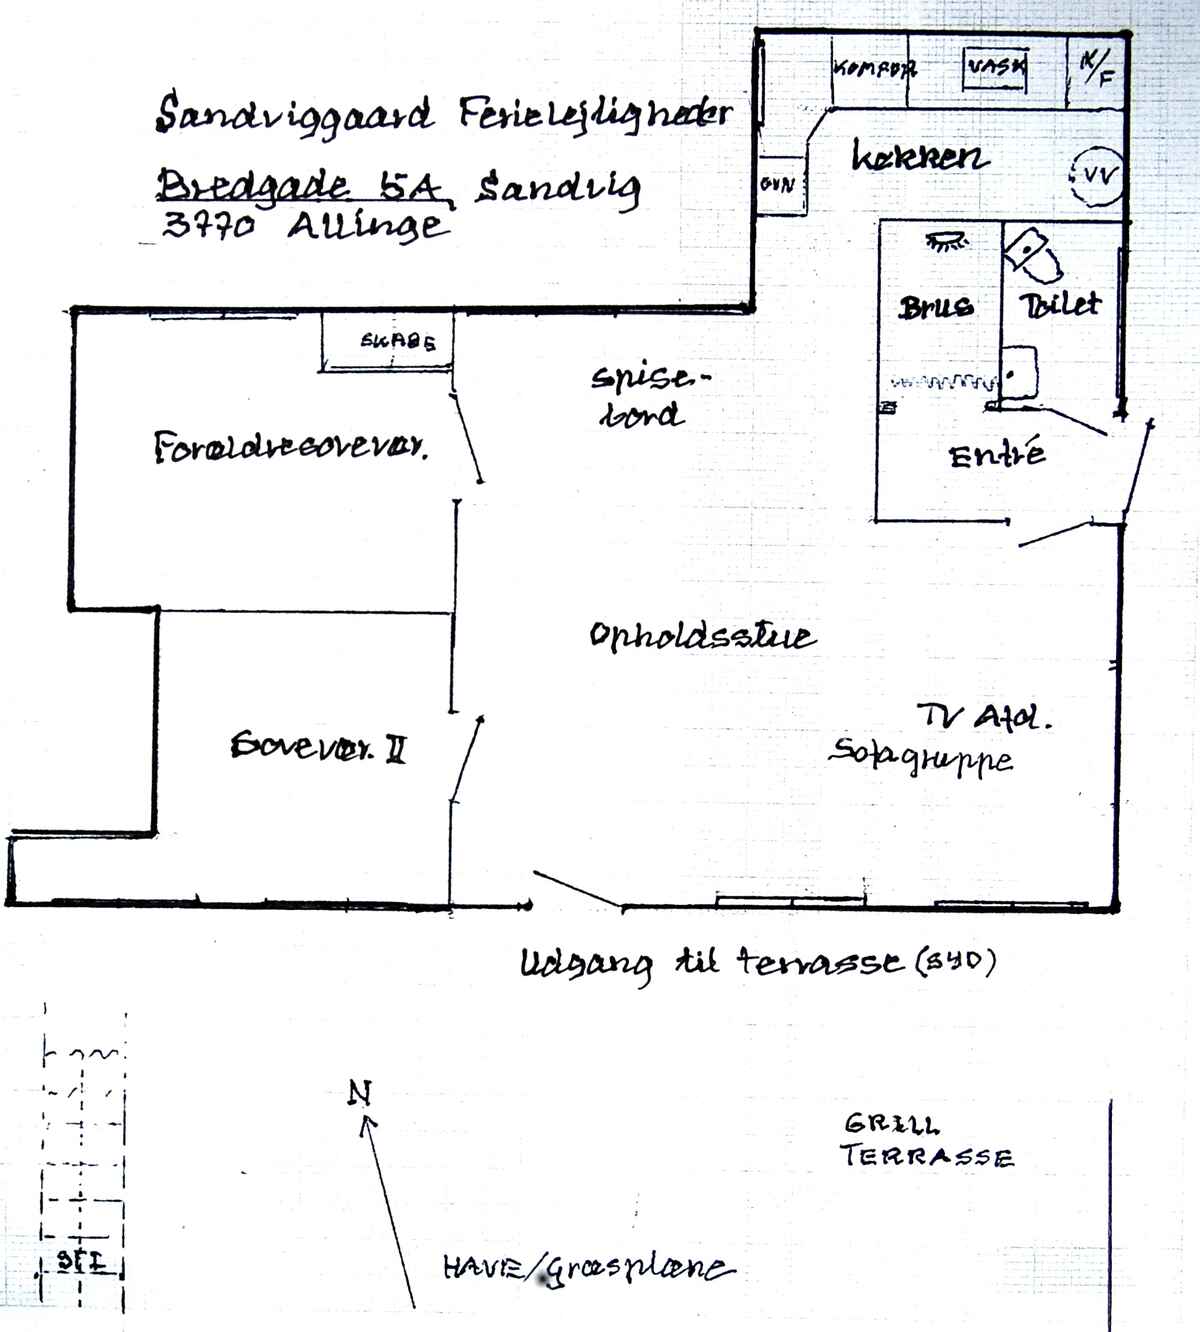 Sandviggaard Ferielejligheder
Bredgade 5A, Sandvig
3770 Allinge
KOMFUR
VASK
K/F
Køkken
OVN
VV
Brus
Toilet
SKABE
Spise-
bord
Forældresovevær.
Entré
Opholdsstue
TV Afd.
Sofagruppe
Sovevær. II
Udgang til terrasse (SYD)
N
GRILL
TERRASSE
STI
HAVE/Græsplæne